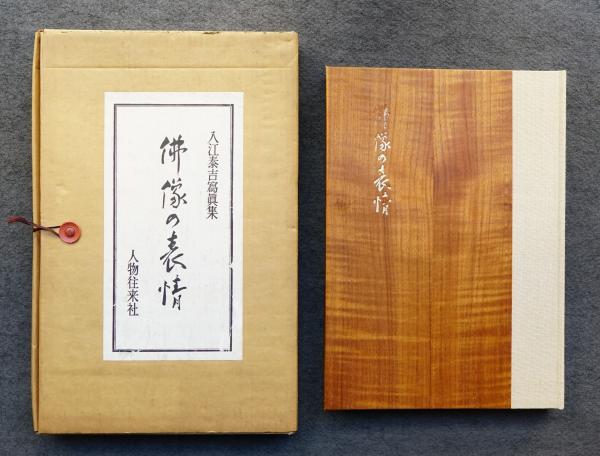 入江泰吉寫眞集
佛像の表情
人物往来社
佛像の表情